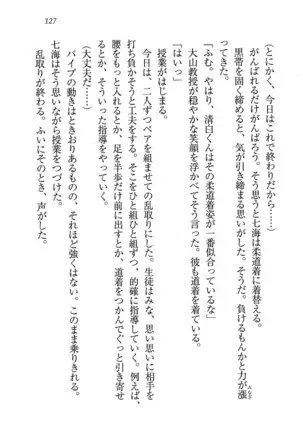 127
(とにかく、今日はこれで終わりだから……)
がんばれるだけがんばろう。そう思うと七海は柔道着に着替える。
黒帯を固く締めると、気が引き締まる思いがした。そうだ。負けるもんかと力が漲
みなぎ
ってきた。
「ふむ。やはり、清白くんはその柔道着姿が一番似合っているな」
大山教授が穏やかな笑顔を浮かべてそう言った。彼も道着を着ている。
「はいっ」
授業がはじまる。
今日は、二人ずつペアを組ませての乱取りにした。生徒はみな、思い思いに相手を
打ち負かそうと工夫をする。そこをひと組ひと組ずつ、的確に指導していく。例えば、
腰をもっと入れるとか、足を半歩だけ前に出すとか、道着をつかんでぐっと引き寄せ
るとか、そういった指導をやっていく。
(大丈夫だ……)
パイプの動きはときおりあるものの、それほど強くはない。このまま乗りきれる。
七海はそう思いながら授業をつづけた。
乱取りが終わる。ふいにそのとき、声がした。